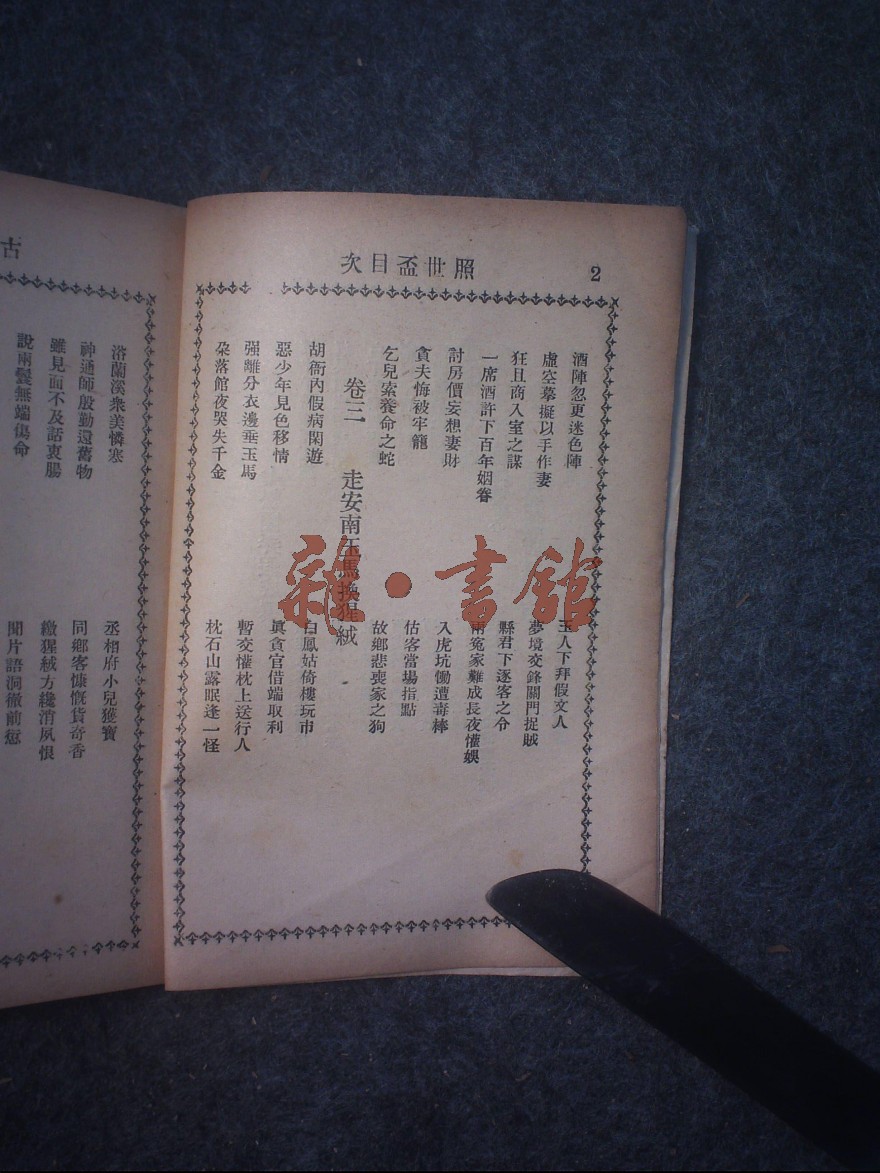 照世盃目次
2
酒陣忽更迷色陣
玉人下拜假文人
虛空摹擬以手作妻
夢境交鋒關門捉賊
狂且商入室之謀
縣君下逐客之令
一席酒許下百年姻眷
兩冤家難成長夜懽娛
討房價妄想妻財
入虎坑慟遭毒棒
貪夫悔被牢籠
估客當場指點
乞兒索養命之蛇
故鄉悲喪家之狗
卷三 走安南玉馬換猩絨
胡衙內假病閑遊
白鳳姑倚樓玩市
惡少年見色移情
眞貪官借端取利
强離分衣邊垂玉馬
暫交懽枕上送行人
朶落館夜哭失千金
枕石山露眠逢一怪
古
浴蘭溪衆美憐寒
丞相府小兒獲寶
神通師殷勤還舊物
同鄉客慷慨貨奇香
雖見面不及話衷腸
繳猩絨方纔消夙恨
說兩鬟無端傷命
聞片語洞徹前愆
雜·書館